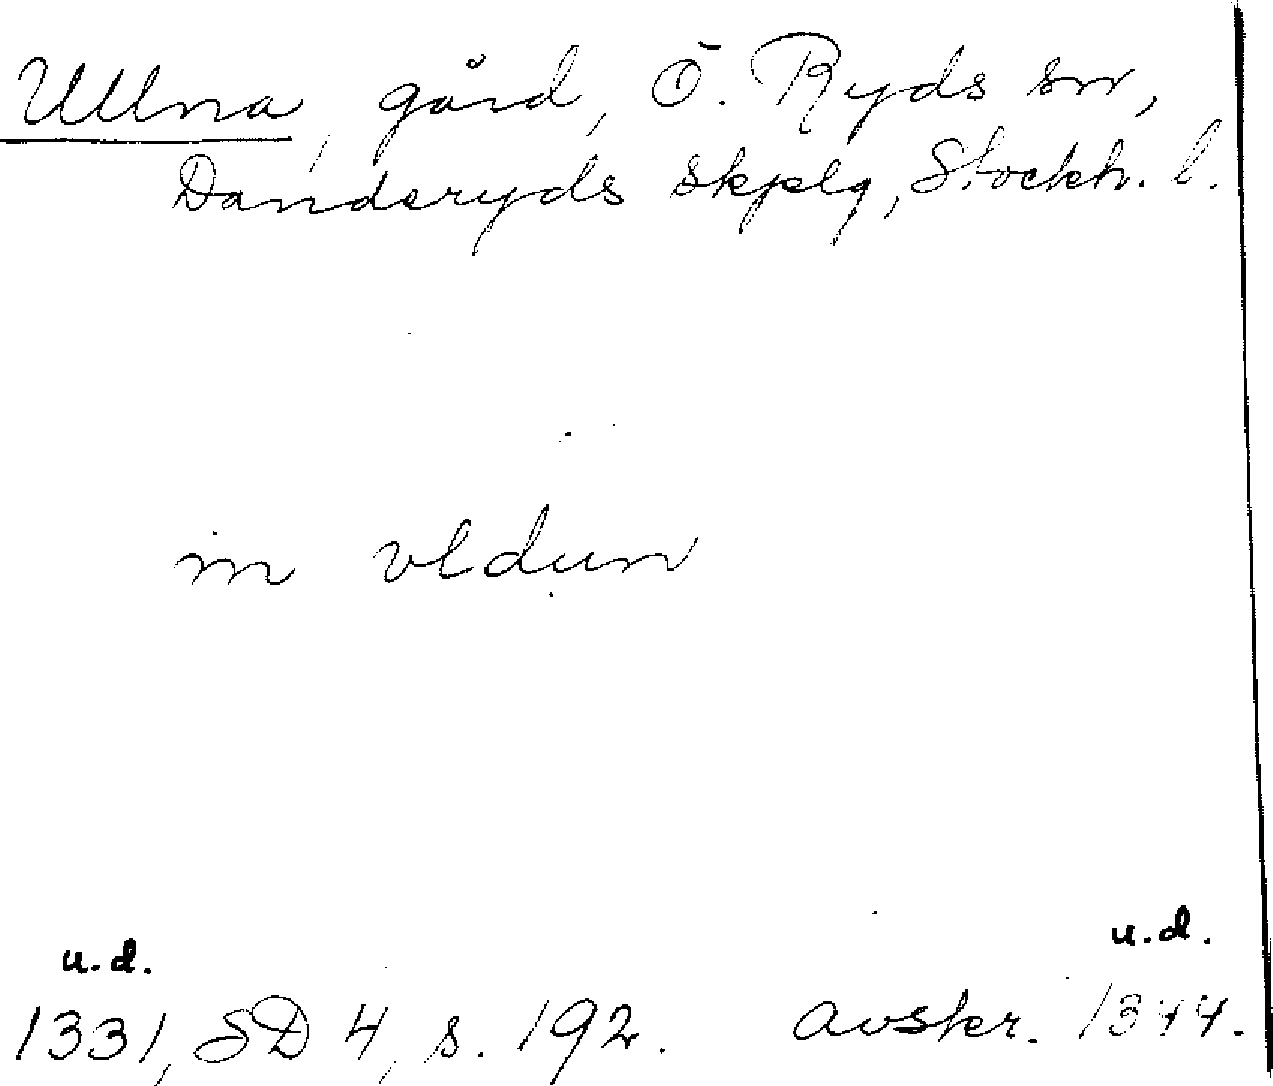 Ullna, gård, Ö. Ryds sn,
Danderyds skplg, Stockh. l.
in vldun
u.d. u.d.
1331, SD 4, s. 192. avskr. 1344.